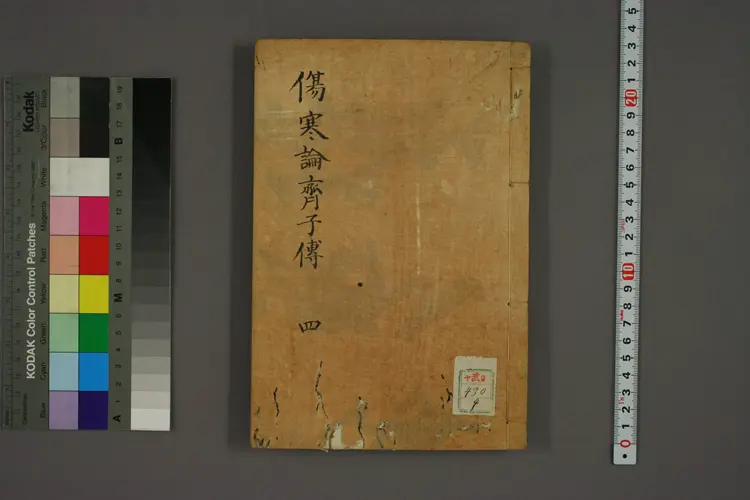 傷寒論齊子傳 四
十武日
490
4
KODAK Color Control Patches
Kodak
Blue
Cyan
Green
Yellow
Red
Magenta
White
3/Color
Black
A 1 2 3 4 5 6 M 8 9 10 11 12 13 14 15 B 17 18 19
0 1 2 3 4 5 6 7 8 9 10 1 2 3 4 5 6 7 8 9 20 1 2 3 4 5